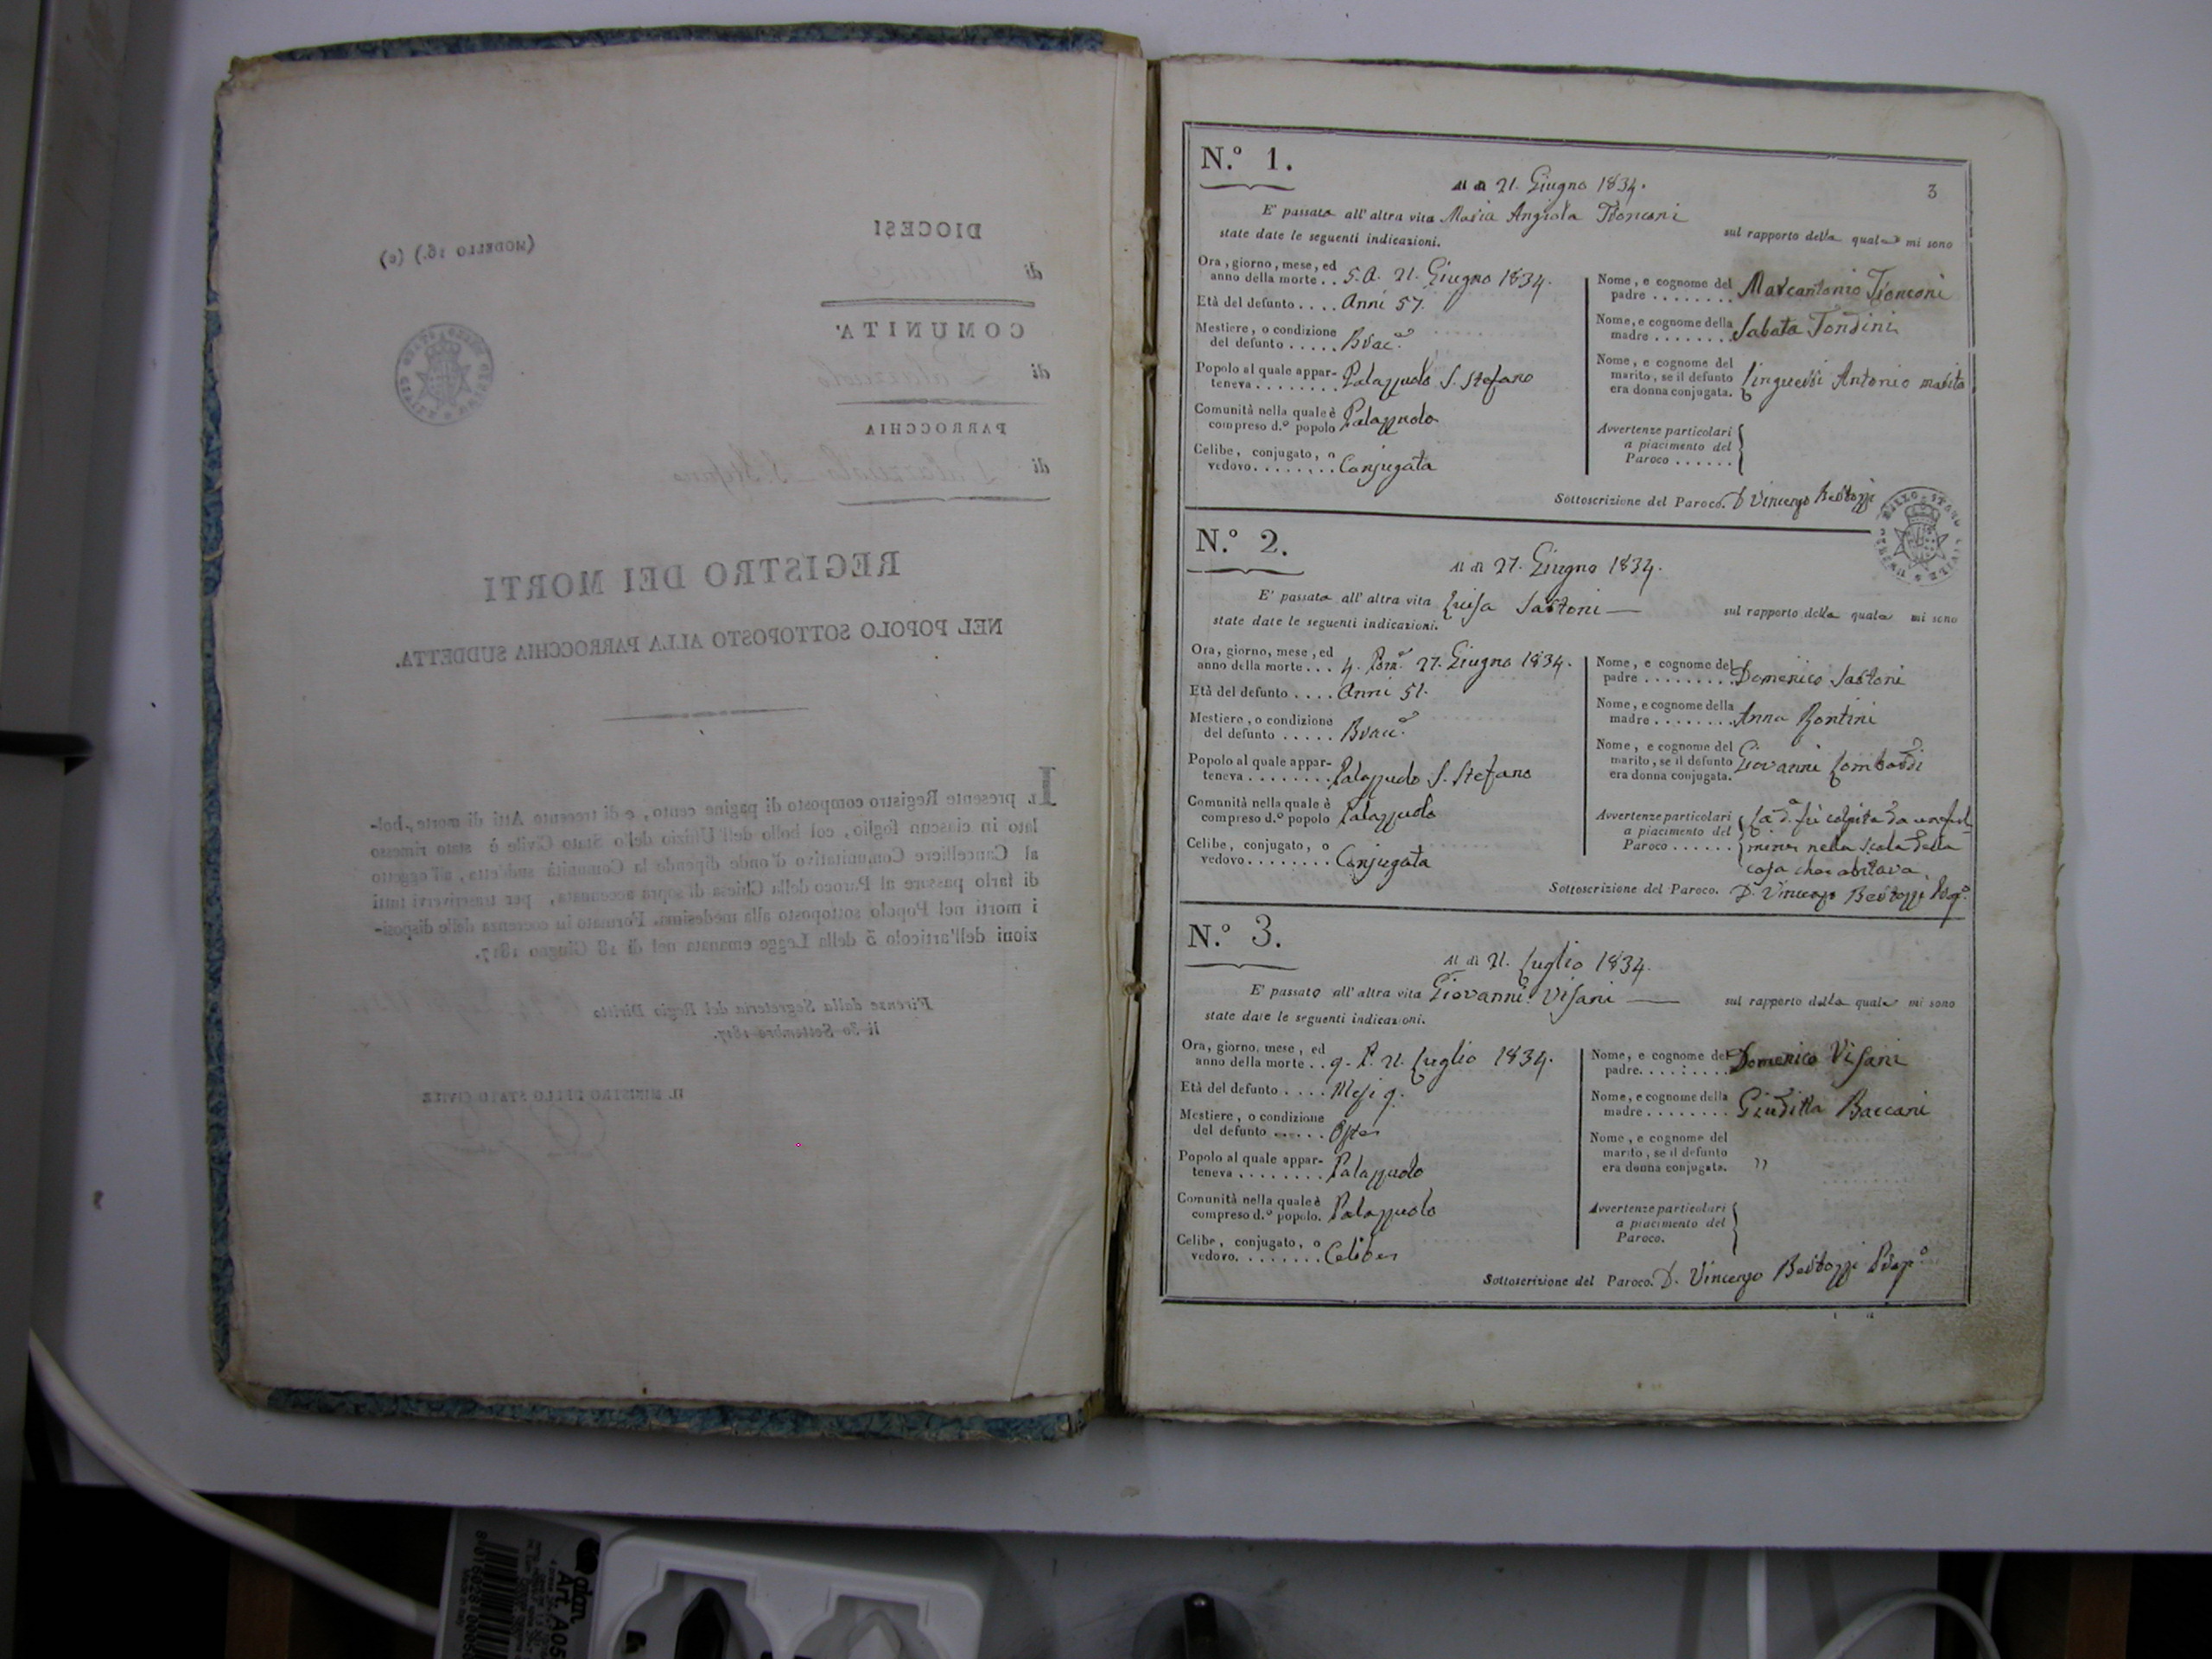 (MODELLO 16.) (c)
DIOCESI
di
COMUNITA'
di Palazzuolo
PARROCCHIA
di Palazzuolo S. Stefano
REGISTRO DEI MORTI
NEL POPOLO SOTTOPOSTO ALLA PARROCCHIA SUDDETTA.
IL presente Registro composto di pagine cento, e di trecento Atti di morte, bol-
lato in ciascun foglio, col bollo dell'Uffizio dello Stato Civile è stato rimesso
al Cancelliere Comunitativo d'onde dipende la Comunità suddetta, all'oggetto
di farlo passare al Paroco della Chiesa di sopra accennata, per trascrivervi tutti
i morti nel Popolo sottoposto alla medesima. Formato in coerenza delle disposi-
zioni dell'articolo 5 della Legge emanata nel di 18 Giugno 1817.
Firenze dalla Segreteria del Regio Diritto
li 30 Settembre 1817.
IL MINISTRO DELLO STATO CIVILE
3
N.º 1.
A dì 21. Giugno 1834.
E' passata all'altra vita Maria Angiola Tronconi
sul rapporto della quale mi sono
state date le seguenti indicazioni.
Ora, giorno, mese, ed
anno della morte . . 5. A. 21. Giugno 1834.
Età del defunto . . . . Anni 57.
Mestiere, o condizione
del defunto . . . . . Brac.e
Popolo al quale appar-
teneva . . . . . . . . Palazzuolo S. Stefano
Comunità nella quale è
compreso d.º popolo Palazzuolo
Celibe, conjugato, o
vedovo. . . . . . . . Conjugata
Nome, e cognome del
padre . . . . . . . . Marcantonio Tronconi
Nome, e cognome della
madre . . . . . . . . Sabata Tondini
Nome, e cognome del
marito, se il defunto
era donna conjugata. Antonio marito
Avvertenze particolari
a piacimento del
Paroco . . . . . .
Sottoscrizione del Paroco. D Vincenzo Bertozzi
BOLLO STATO CIVILE
N.º 2.
A dì 27. Giugno 1834.
E' passata all'altra vita Luisa Sartoni
sul rapporto della quale mi sono
state date le seguenti indicazioni.
Ora, giorno, mese, ed
anno della morte . . . 4. Pom. 27. Giugno 1834.
Età del defunto . . . . Anni 51.
Mestiere, o condizione
del defunto . . . . . Brac.e
Popolo al quale appar-
teneva . . . . . . . . Palazzuolo S. Stefano
Comunità nella quale è
compreso d.º popolo Palazzuolo
Celibe, conjugato, o
vedovo. . . . . . . . Conjugata
Nome, e cognome del
padre . . . . . . . . . Domenico Sartoni
Nome, e cognome della
madre . . . . . . . . Anna Bontini
Nome, e cognome del
marito, se il defunto
era donna conjugata. Giovanni Lombardi
Avvertenze particolari
a piacimento del
Paroco . . . . . .
La d.a fù colpita da un ful
mine nella Scala della
casa che abitava.
Sottoscrizione del Paroco. D. Vincenzo Bertozzi Prop.o
N.º 3.
A dì 21. Luglio 1834.
E' passato all'altra vita Giovanni Visani
sul rapporto della quale mi sono
state date le seguenti indicazioni.
Ora, giorno, mese, ed
anno della morte . . 9. P. 21. Luglio 1834.
Età del defunto . . . . Mesi 9.
Mestiere, o condizione
del defunto . . . . .
Popolo al quale appar-
teneva . . . . . . . . Palazzuolo
Comunità nella quale è
compreso d.º popolo. Palazzuolo
Celibe, conjugato, o
vedovo. . . . . . . . Celibe
Nome, e cognome del
padre. . . . . . . . . Domenico Visani
Nome, e cognome della
madre . . . . . . . . Giuditta Baccani
Nome, e cognome del
marito, se il defunto
era donna conjugata. "
Avvertenze particolari
a piacimento del
Paroco.
Sottoscrizione del Paroco. D. Vincenzo Bertozzi Prop.o
Art. A05